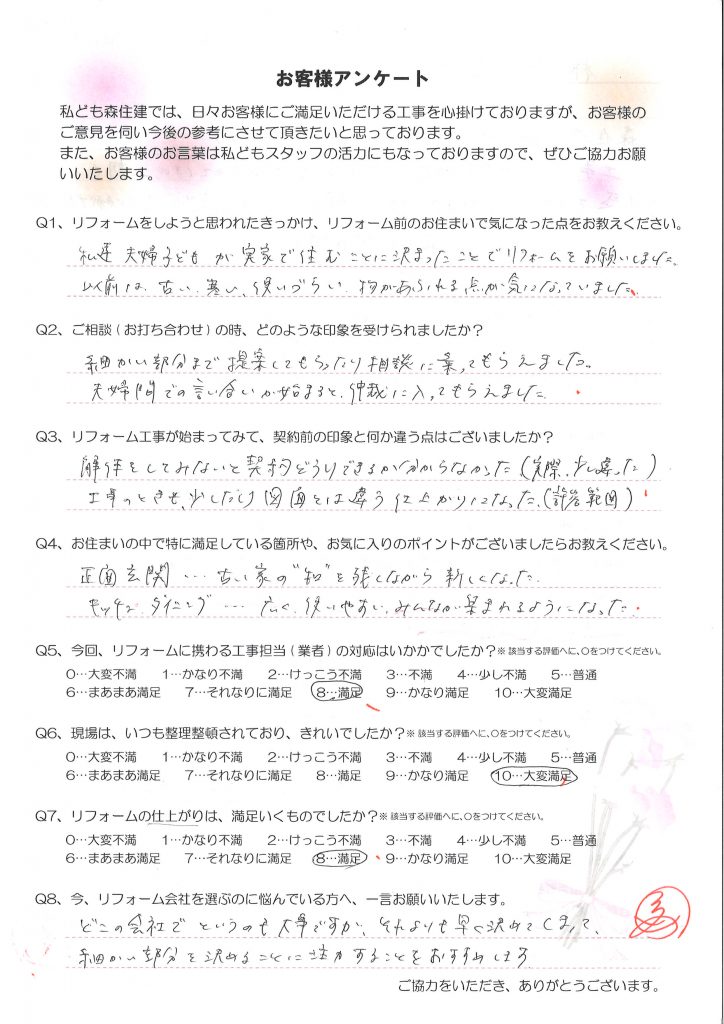 お客様アンケート
私ども森住建では、日々お客様にご満足いただける工事を心掛けておりますが、お客様の
ご意見を伺い今後の参考にさせて頂きたいと思っております。
また、お客様のお言葉は私どもスタッフの活力にもなっておりますので、ぜひご協力お願
いいたします。
Q1、リフォームをしようと思われたきっかけ、リフォーム前のお住まいで気になった点をお教えください。
私達 夫婦子どもが実家で住むことに決まったことでリフォームをお願いしました。
以前は、古い、寒い、使いづらい、物があふれる点が気になっていました。
Q2、ご相談(お打ち合わせ)の時、どのような印象を受けられましたか?
細かい部分まで提案してもらったり相談に乗ってもらえました。
夫婦間での言い合いが始まると、仲裁に入ってもらえました。
Q3、リフォーム工事が始まってみて、契約前の印象と何か違う点はございましたか?
解体をしてみないと契約どうりできるか分からなかった(実際、少し違った)
工事のときも、少したり図面とは違う仕上がりになった。(許容範囲)
Q4、お住まいの中で特に満足している箇所や、お気に入りのポイントがございましたらお教えください。
正面玄関…古い家の"和"を残しながら新しくなった。
キッチン、ダイニング…広く、使い やすい、みんなが集まれるようになった。
Q5、今回、リフォームに携わる工事担当(業者)の対応はいかかでしたか?※該当する評価へに、○をつけてください。
0…大変不満 1…かなり不満 2…けっこう不満 3…不満 4…少し不満 5…普通
6…まあまあ満足 7…それなりに満足 8…満足 9…かなり満足 10…大変満足
Q6、現場は、いつも整理整頓されており、きれいでしたか?※該当する評価へに、○をつけてください。
0…大変不満 1…かなり不満 2…けっこう不満 3…不満 4…少し不満 5…普通
6…まあまあ満足 7…それなりに満足 8…満足 9…かなり満足 10…大変満足
Q7、リフォームの仕上がりは、満足いくものでしたか?※該当する評価へに、○をつけてください。
0…大変不満 1…かなり不満 2…けっこう不満 3…不満 4…少し不満 5…普通
6…まあまあ満足 7…それなりに満足 8…満足 9…かなり満足 10…大変満足
Q8、今、リフォーム会社を選ぶのに悩んでいる方へ、一言お願いいたします。
どこの会社で というのも大事ですが、それよりも早く決めてしまって、
細かい部分を決めることに注力することをおすすめします
ご協力をいただき、ありがとうございます。